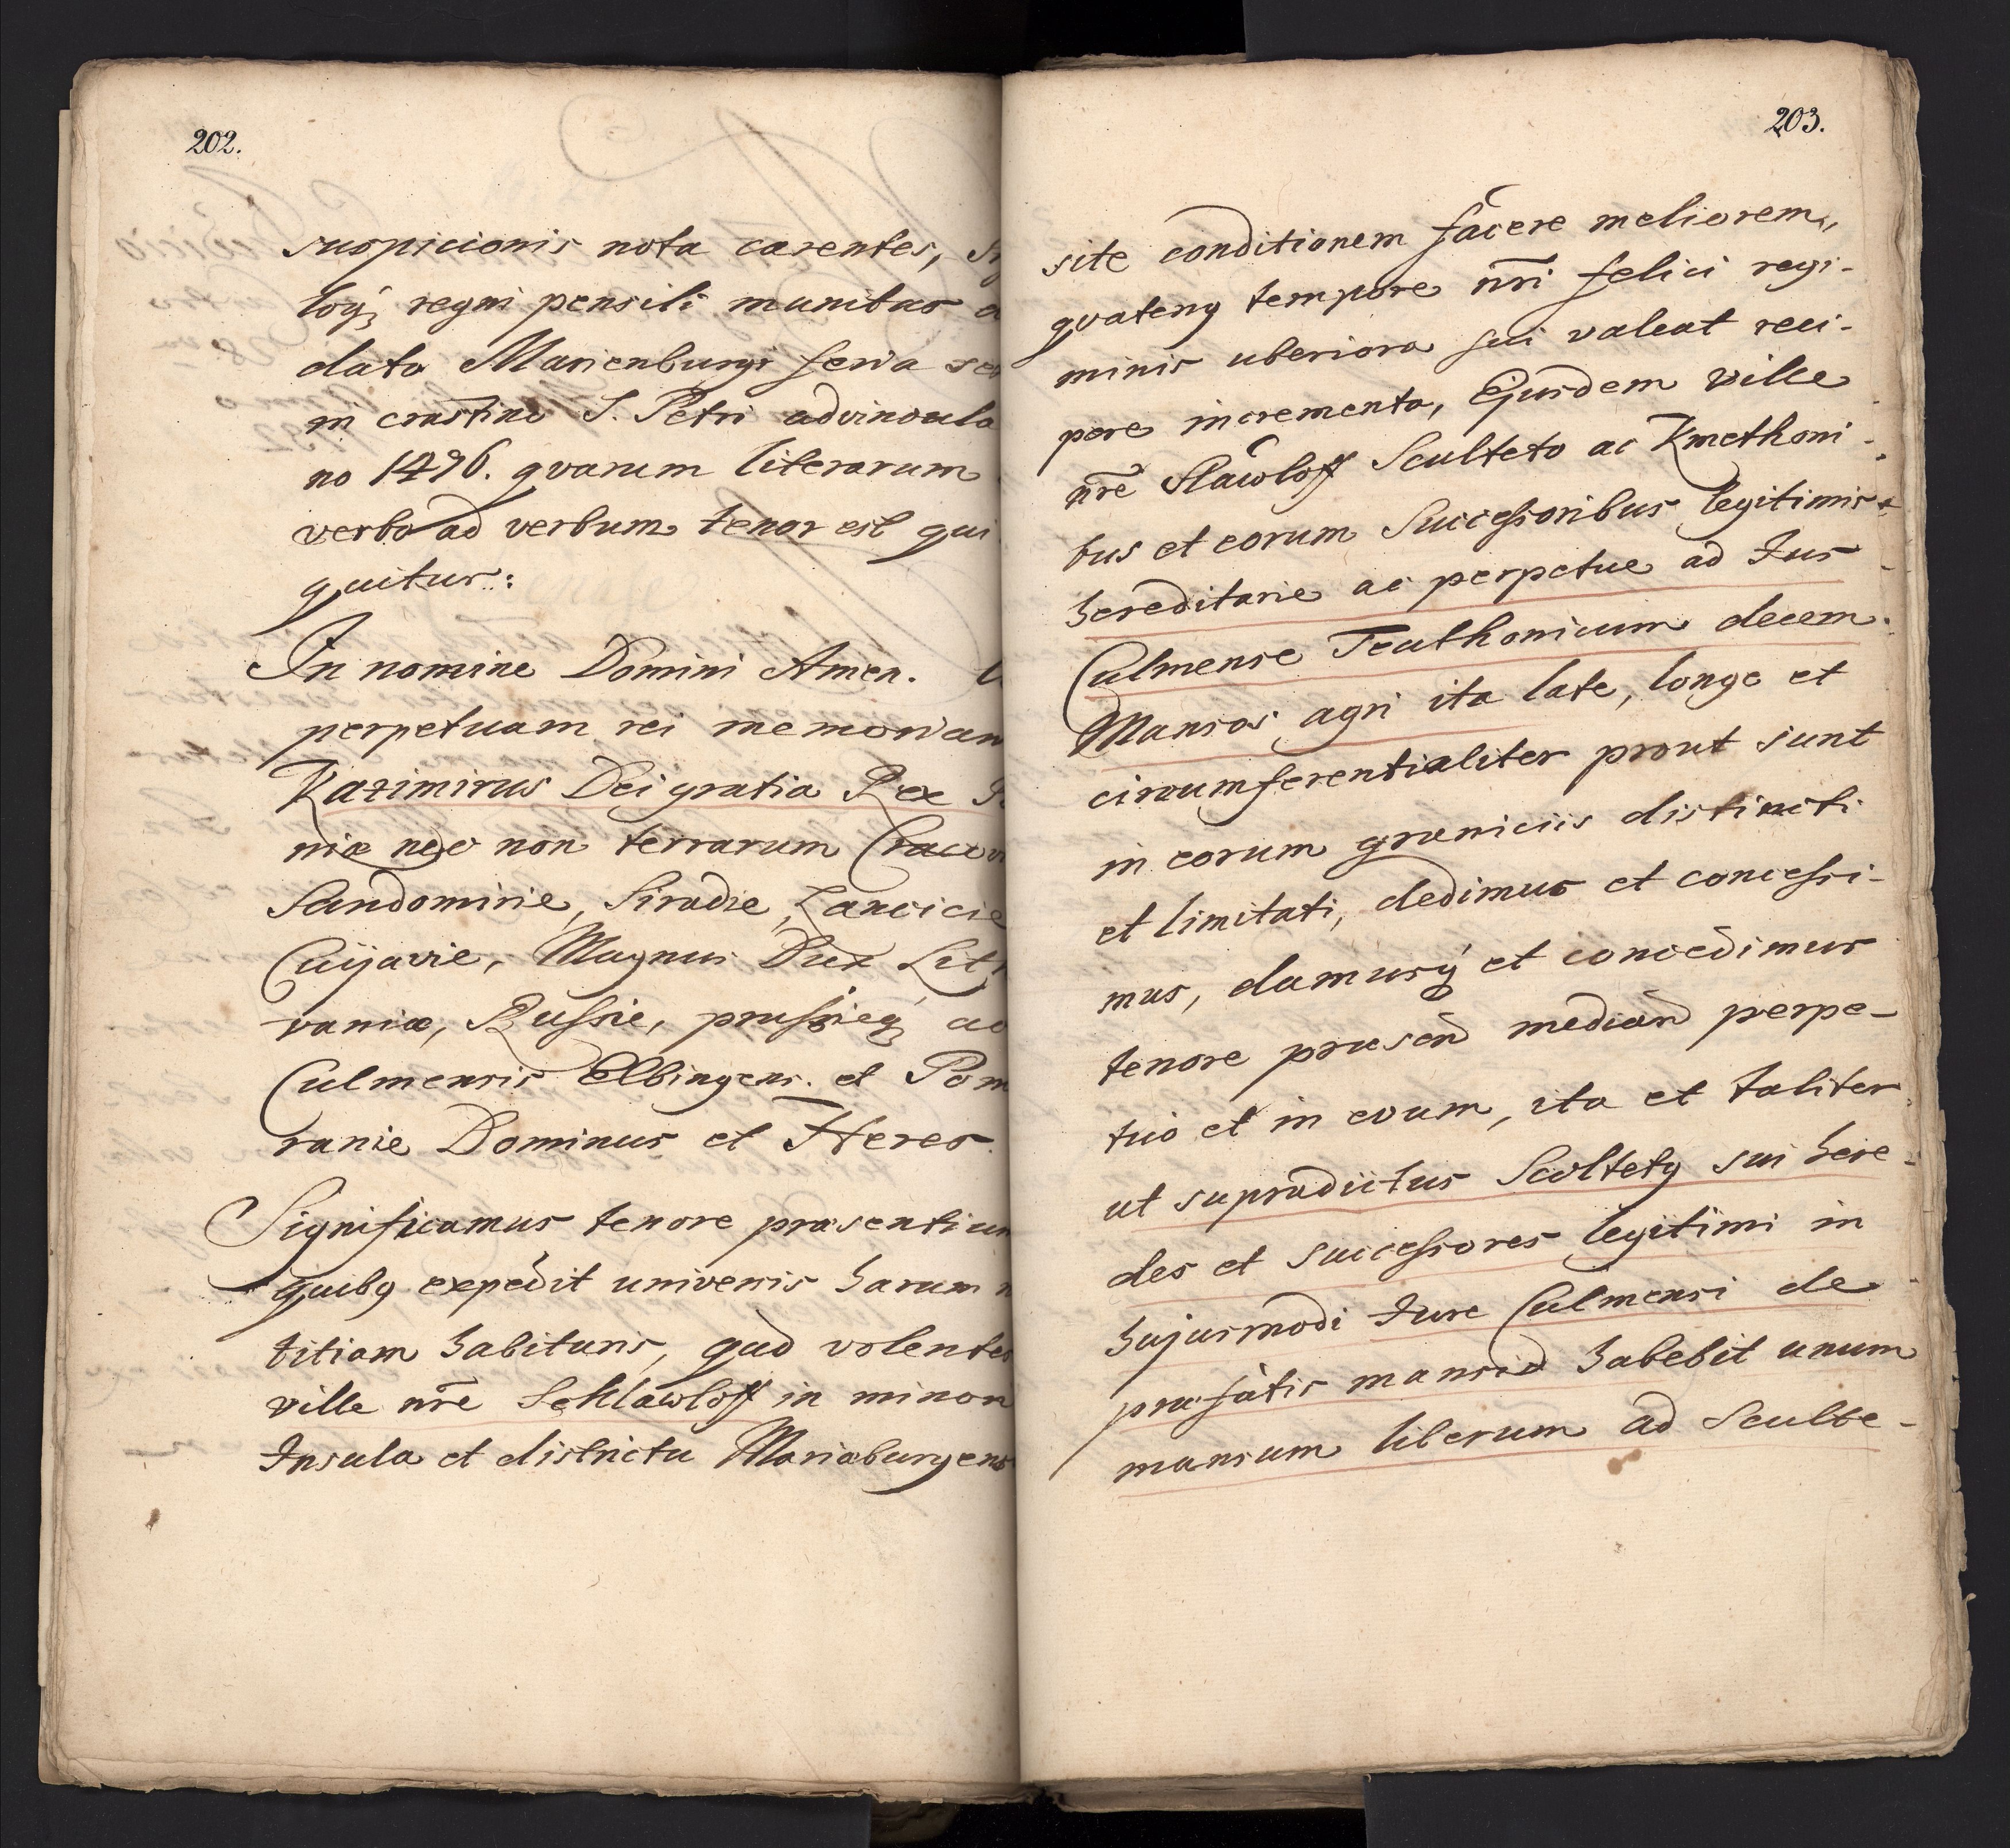 202.
suspicionis nota carentes,
loq̄ regni pensili munitas
data Marienburgi feria
in crastino S. Petri ad vincula
no 1476. qvarum literarum
verbo ad verbum tenor est
quitur:
In nomine Domini Amen.
perpetuam rei memoriam
Kazimirus Dei gratia Rex
niæ nec non terrarum
Sandomirie, Siradie, Lancicie
Cuijavie, Magnus Dux
vaniæ, Russie, prussieq̄ ac
Culmensis Elbingens. et Pom
ranie Dominus et Heres.
Significamus tenore præsentium
quibꝯ expedit universis harum
titiam habituris, qud volentes
ville nr̄e Schlawloff in minori
Insula et districtu Mariaburgens
203.
site conditionem facere meliorem,
qvatenꝯ tempore nr̄i felici regi-
minis uberiora sui valeat reci-
pere incrementa, Ejusdem ville
nr̄e Slawloff Sculteto ac Kmethoni-
bus et eorum Successoribus legitimis
hereditarie ac perpetue ad Jus
Culmense Teuthonicum decem
Mansos agri ita late, longe et
circumferentialiter prout sunt
in eorum græniciis distincti
et limitati, dedimus et concessi-
mus, damusq̄ et concedimus
tenore præsen̄ median̄ perpe-
tuo et in evum, ita et taliter
ut supradictus Scoltetꝯ sui here-
des et successores legitimi in
hujusmodi Jure Culmensi de
præfatis mansis habebit unum
mansum liberum ad Sculte-